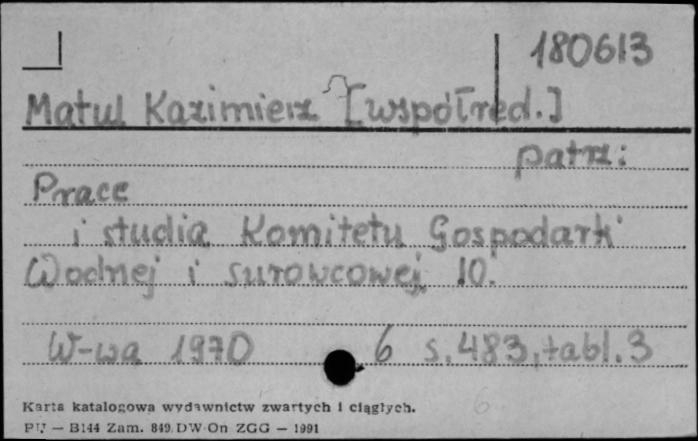 180613
Matul Kazimierz [współred.]
patrz:
Prace
i studia Komitetu Gospodarki
Wodnej i surowcowej 10.
W-wa 1970 6 s. 483, tabl. 3
Karta katalogowa wydawnictw zwartych i ciągłych.
PU — B144 Zam. 849 DW On ZGG — 1991
6